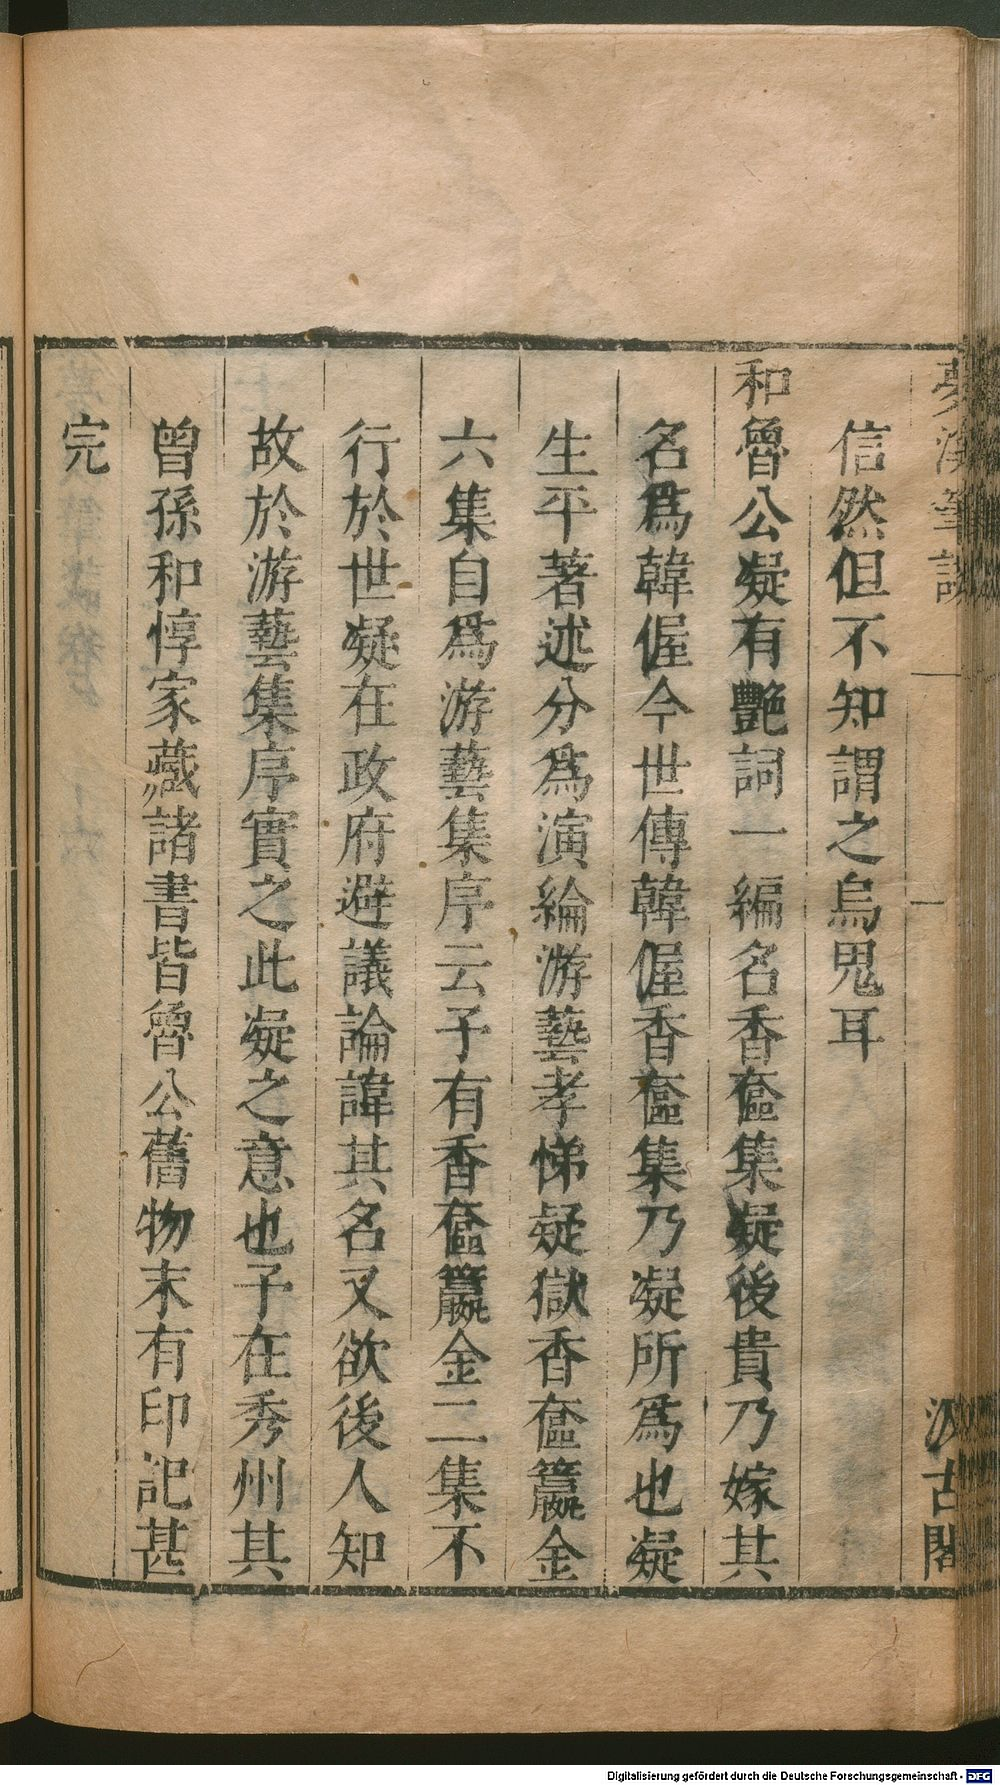 夢溪筆談
汲古閣
信然但不知謂之烏鬼耳
和魯公凝有艷詞一編名香奩集凝後貴乃嫁其
名爲韓偓今世傳韓偓香奩集乃凝所爲也凝
生平著述分爲演綸游藝孝悌疑獄香奩籯金
六集自爲游藝集序云予有香奩籯金二集不
行於世凝在政府避議論諱其名又欲後人知
故於游藝集序實之此凝之意也予在秀州其
曾孫和惇家藏諸書皆魯公舊物末有印記甚
完
Digitalisierung gefördert durch die Deutsche Forschungsgemeinschaft - DFG